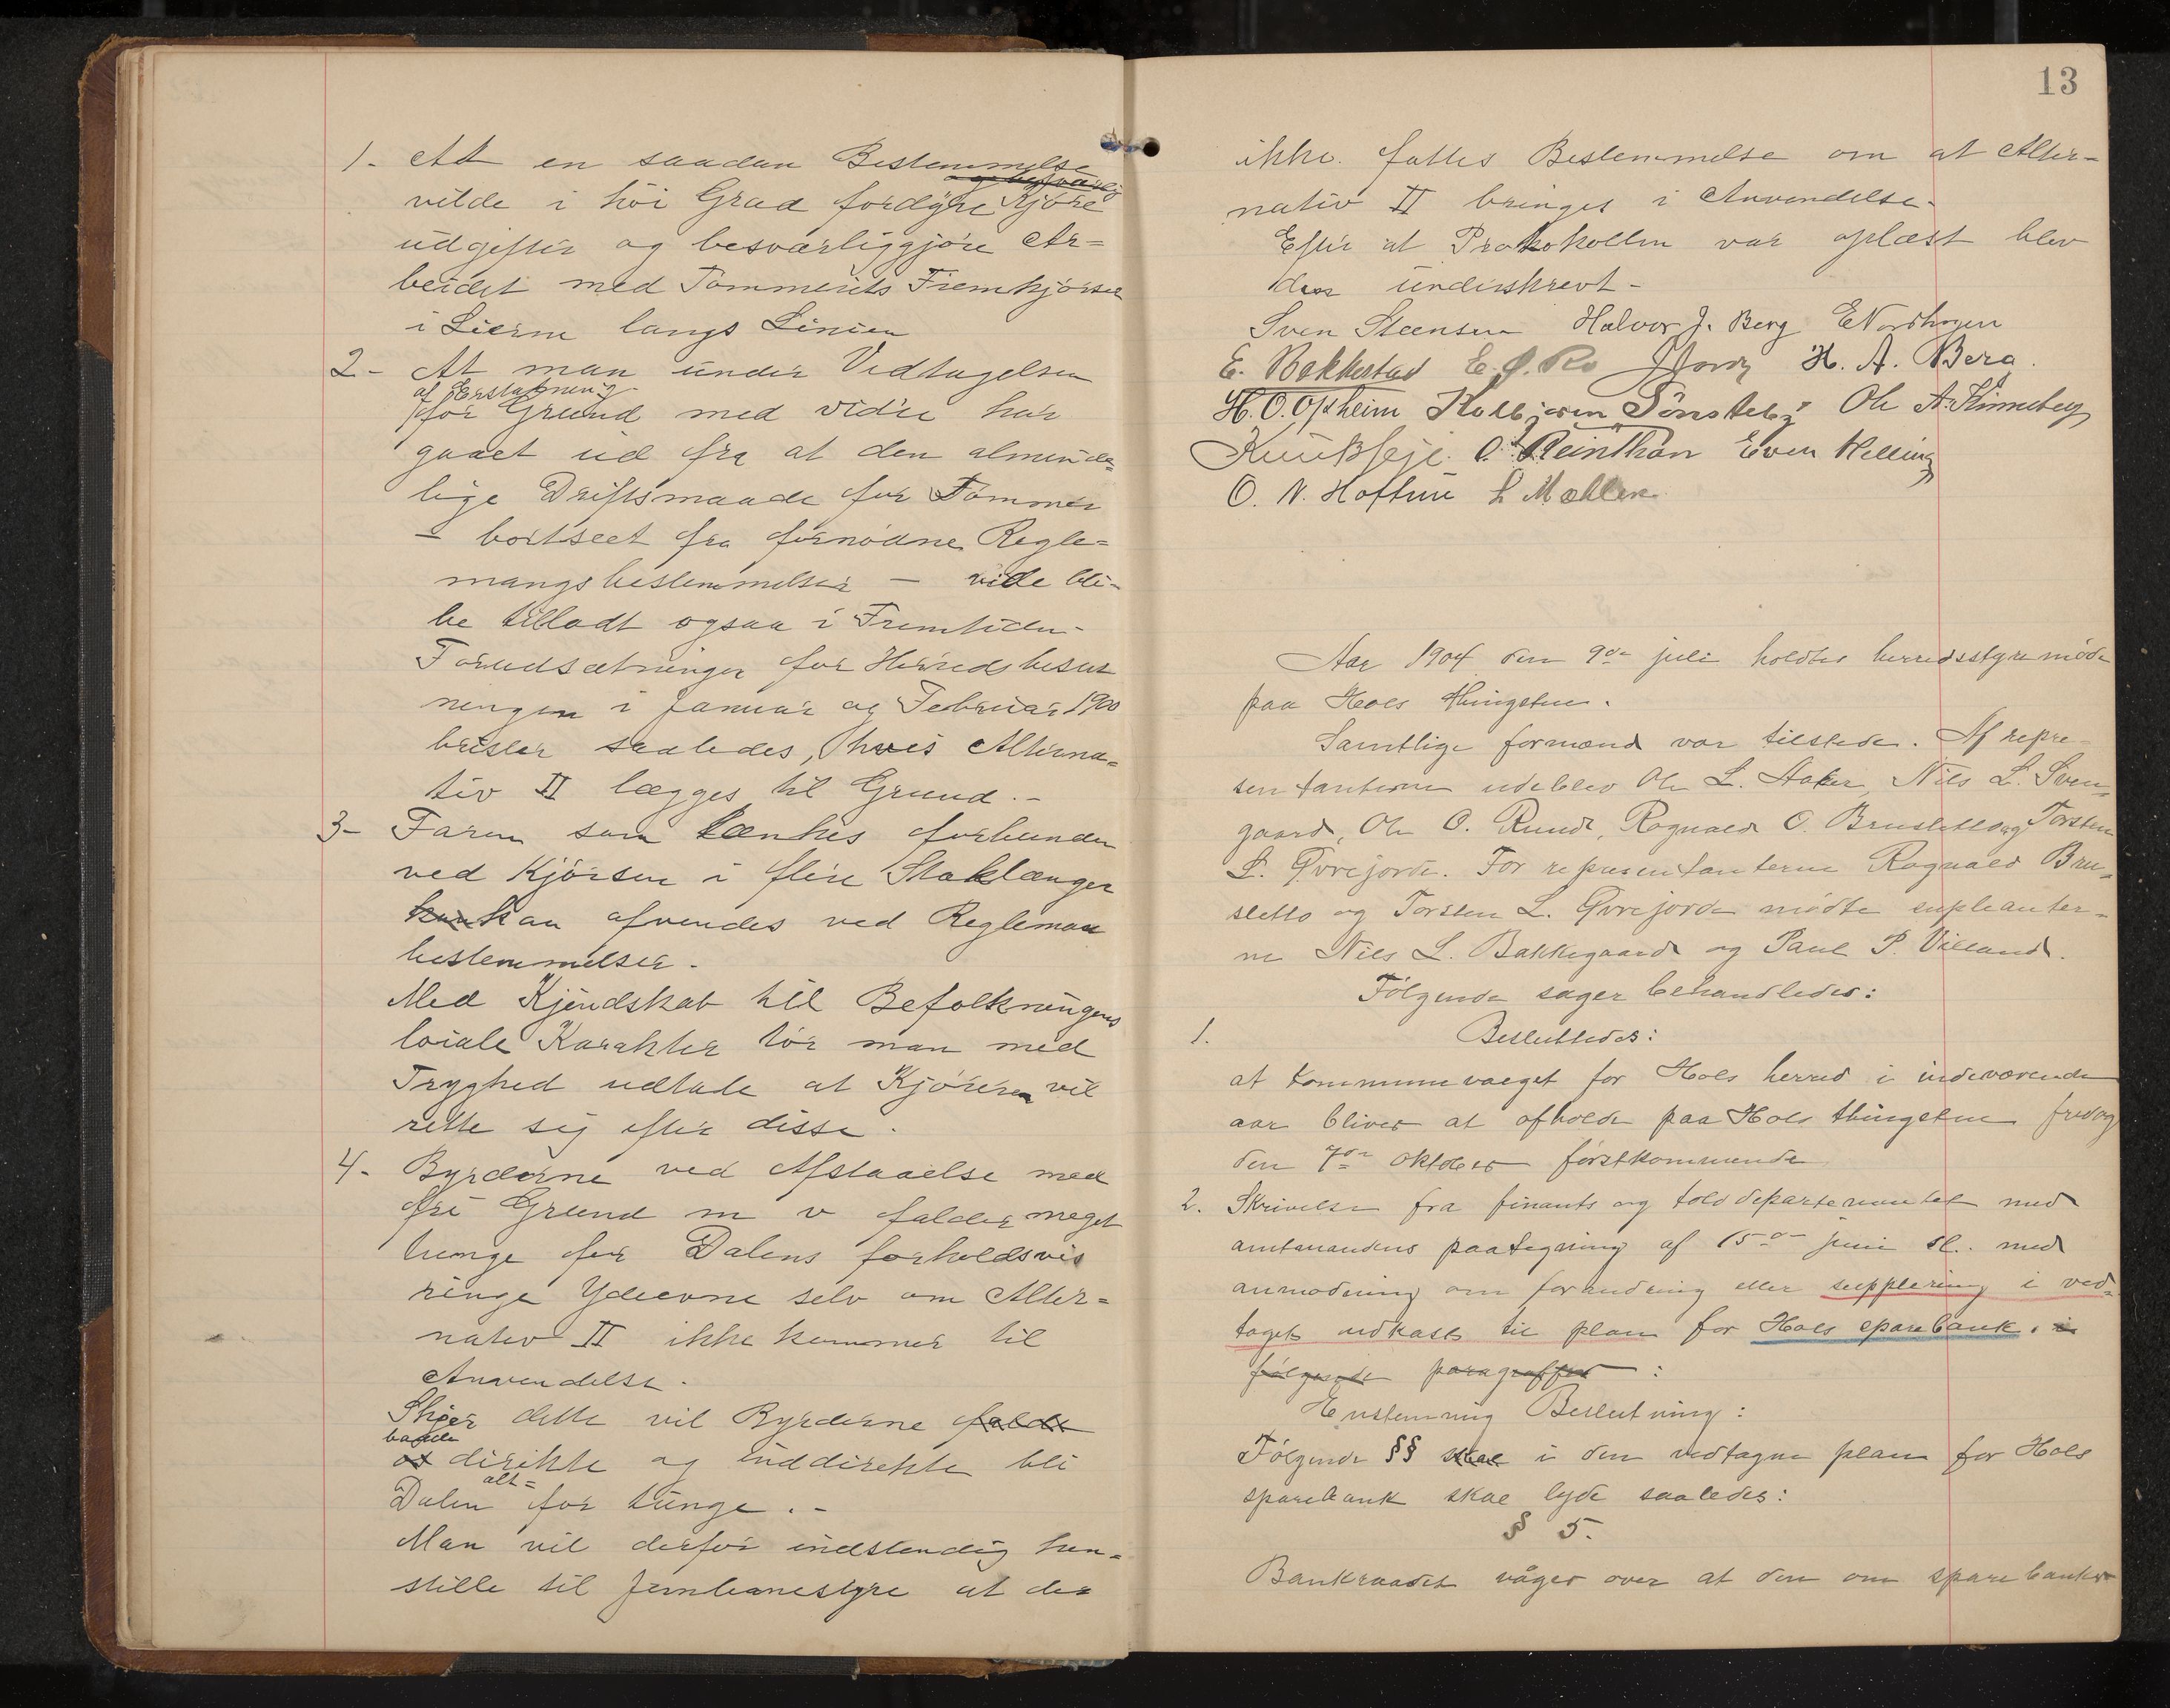 1- At en saadan Bestemmelse
og besværlig
vilde i høi Grad fordyre Kjøre
udgifter og besværliggjøre Ar=
beidet med Tømmerets Fremkjørsel
i Lierne langs Linien
2- At man under Vedtagelsen
af Erstatning
for Grund med videre har
gaaet ud fra at den alminde=
lige Driftsmaade for Tømmer
- bortseet fra fornødne Regle=
mangsbestemmelser - vilde bli-
be tilladt ogsaa i Fremtiden-
Forudsætninger for Herredsbeslut
ningen i Januar og Februar 1900
brister saaledes, hvis Alterna=
tiv II lægges til Grund.-
3- Faren som tænkes forbunden
ved Kjørsen i flere Stoklænger
kan kan afvendes ved Regleman
bestemmelser.
Med Kjendskab til Befolkningens
loiale Karakter tør man med
Tryghed udtale at Kjøreren vil
rette sig efter disse.
4- Byrderne ved Afstaaelse med
fri Grund m v falder meget
tunge for Dalens forholdsvis
ringe Ydeevne selv om Alter=
nativ II ikke kommer til
Anvendelse.
Skjer dette vil Byrderne falde
baade
direkte og inddirekte bli
alt=
Dalen for tunge.-
Man vil derfor indstendig hen=
stille til Jernbanestyre at der
13
ikke fattes Bestemmelse om at Alter=
nativ II bringes i Anvendelse-
Efter at Protokollen var oplæst blev
den underskrevt-
Sven Steensen Halvor J. Berg E Nordhagen
E. Bakkestad E. O. Ro H. A. Berg.
H. O. Opheim Kolbjørn Sønsteby Ole A. Kinneberg
O. Reinthon Even Helling
O. N. Hoftun L Mæhlen
Aar 1904 den 9de juli holdtes herredsstyremøde
paa Hols thingstue.
Samtlige formænd var tilstede. Af repre=
sentanterne udeblev Ole L. Aaker, Nils L. Sven=
gaard, Ole O. Rund, Ragnald O. Brusletto og Torsten
L. Øvrejorde. For representanterne Ragnald Bru=
sletto og Torsten L. Øvrejorde mødte supleanter=
ne Nils L. Bakkegaard og Paul P. Villand.
Følgende sager behandledes:
1. Besluttedes:
at Kommunevalget for Hols herred i indeværende
aar bliver at afholde paa Hols thingstue fredag
den 7de oktober førstkommende
2. Skrivelse fra finants og tolddepartementet med
amtmandens paategning af 15de juni sl. med
anmodning om forandring eller supplering i ved=
taget udkast til plan for Hols sparebank. i
følgende paragraffer :
Enstemmig Beslutning:
Følgende §§ skal i den vedtagne plan for Hols
sparebank skal lyde saaledes:
§ 5.
Bankraadet våger over at den om sparebanker